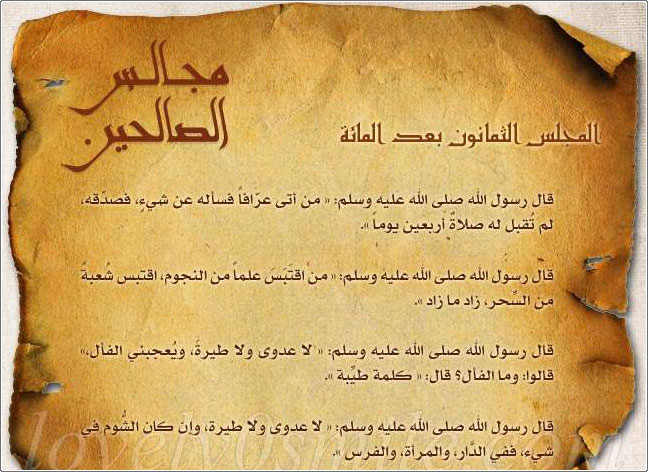 مجالس
الصالحين
المجلس الثمانون بعد المائة
قال رسول الله صلى الله عليه وسلم: « من أتى عرّافاً فسأله عن شيءٍ، فصدّقه،
لم تُقبل له صلاةٌ أربعين يوماً ».
قال رسول الله صلى الله عليه وسلم: « من اقتبَسَ علماً من النجوم، اقتبس شُعبةً
من السِّحر، زاد ما زاد ».
قال رسول الله صلى الله عليه وسلم: « لا عدوى ولا طيرةَ، ويُعجبني الفأل،»
قالوا: وما الفأل؟ قال: « كلمة طيِّبة ».
قال رسول الله صلى الله عليه وسلم: « لا عدوى ولا طيرة، وإن كان الشُّوم في
شيء، ففي الدَّار، والمرأة، والفرس ».